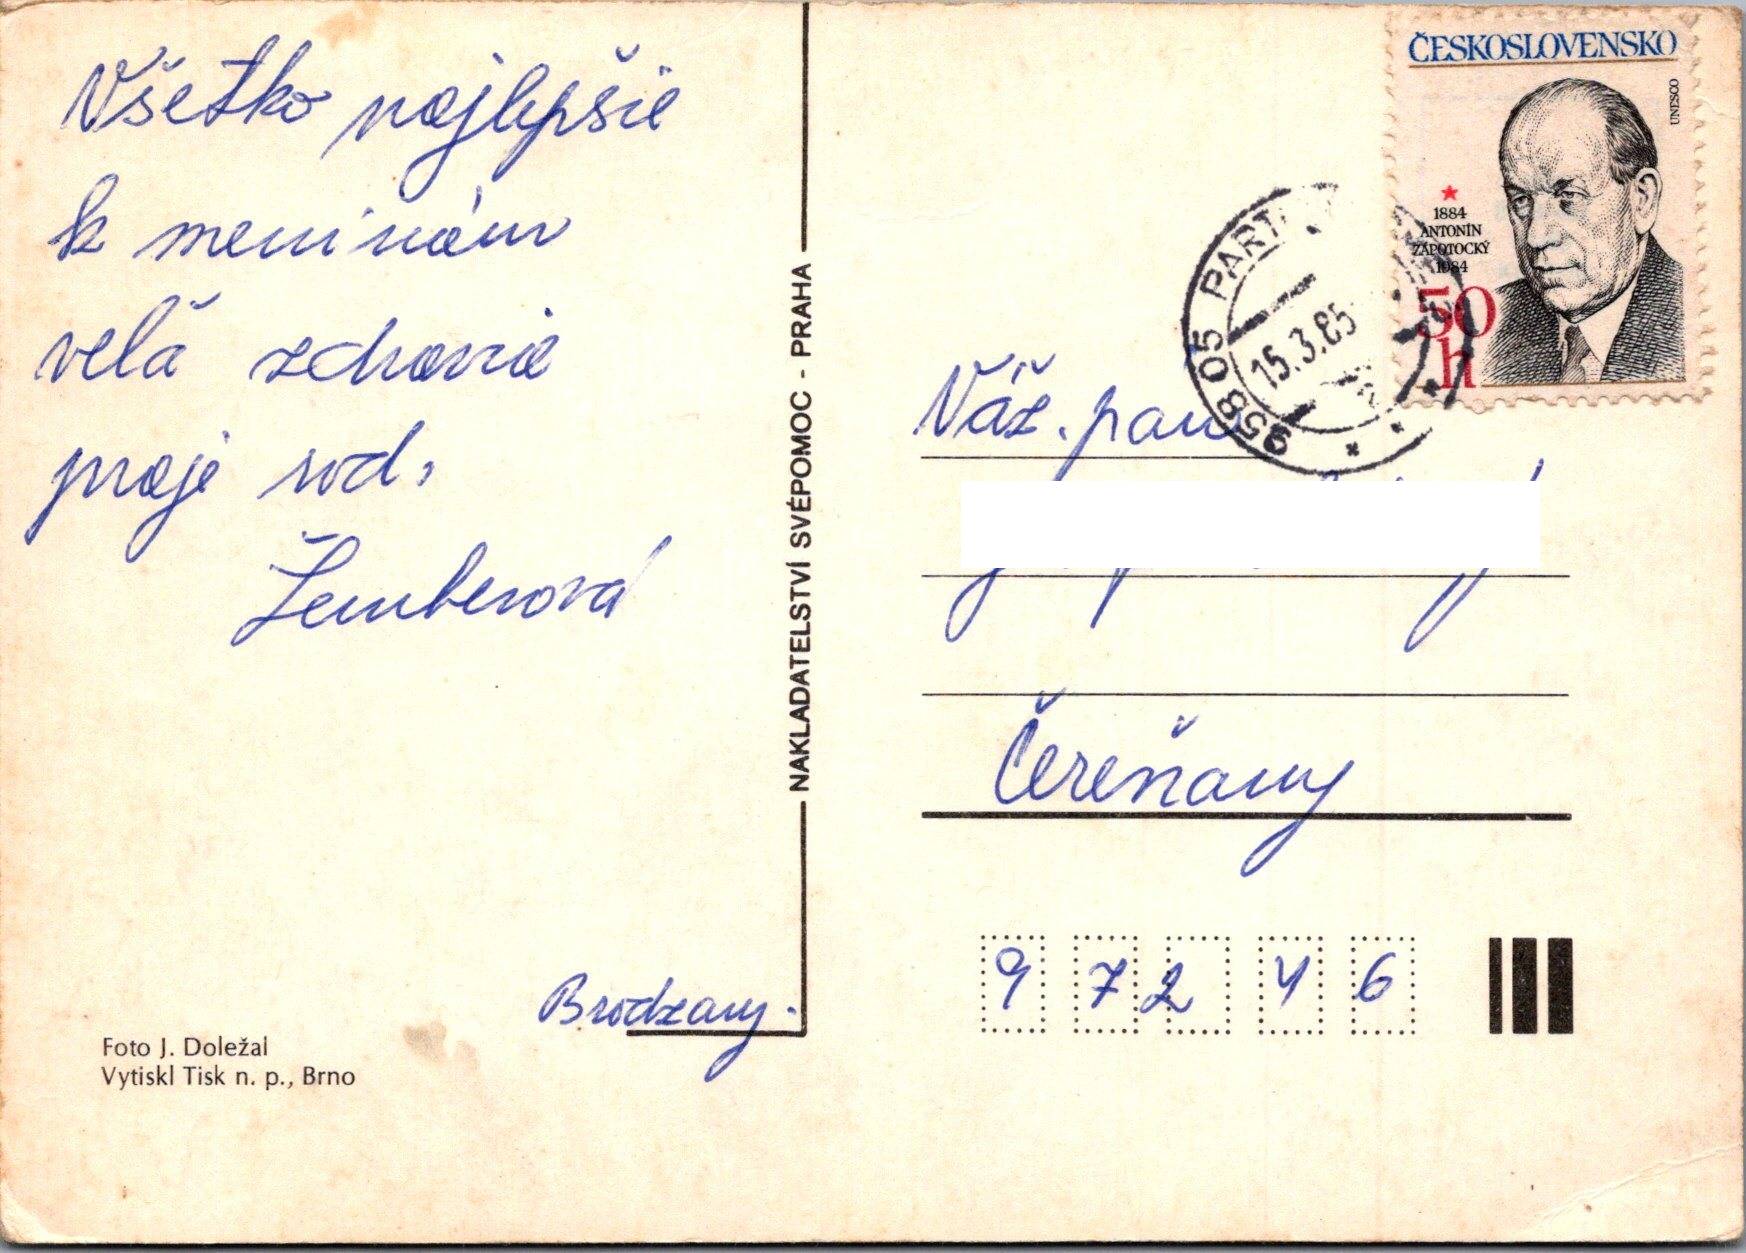 Všetko najlepšie
k meninám
velá zdravie
praje rod.
Žemberová
Brodzany.
Foto J. Doležal
Vytiskl Tisk n. p., Brno
NAKLADATELSTVÍ SVÉPOMOC - PRAHA
ČESKOSLOVENSKO
UNESCO
1884
ANTONÍN
ZÁPOTOCKÝ
1984
50
h
958 05 PARTI
15.3.85
Váž. pan
Čereňany
972 46